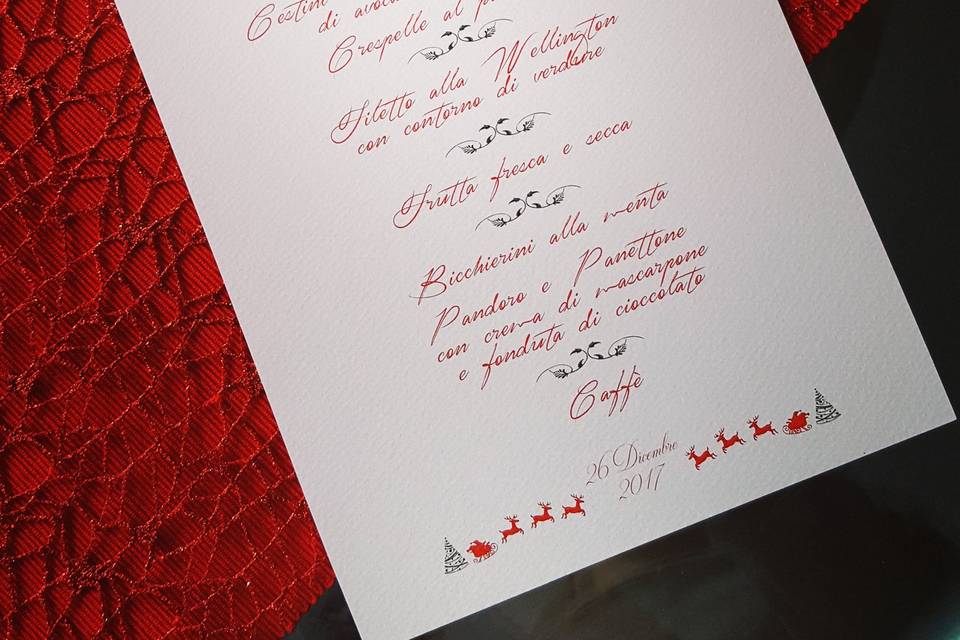 Cestini
di avoca
Crespelle al p
Filetto alla Wellington
con contorno di verdure
Frutta fresca e secca
Bicchierini alla menta
Pandoro e Panettone
con crema di mascarpone
e fonduta di cioccolato
Caffè
26 Dicembre
2017